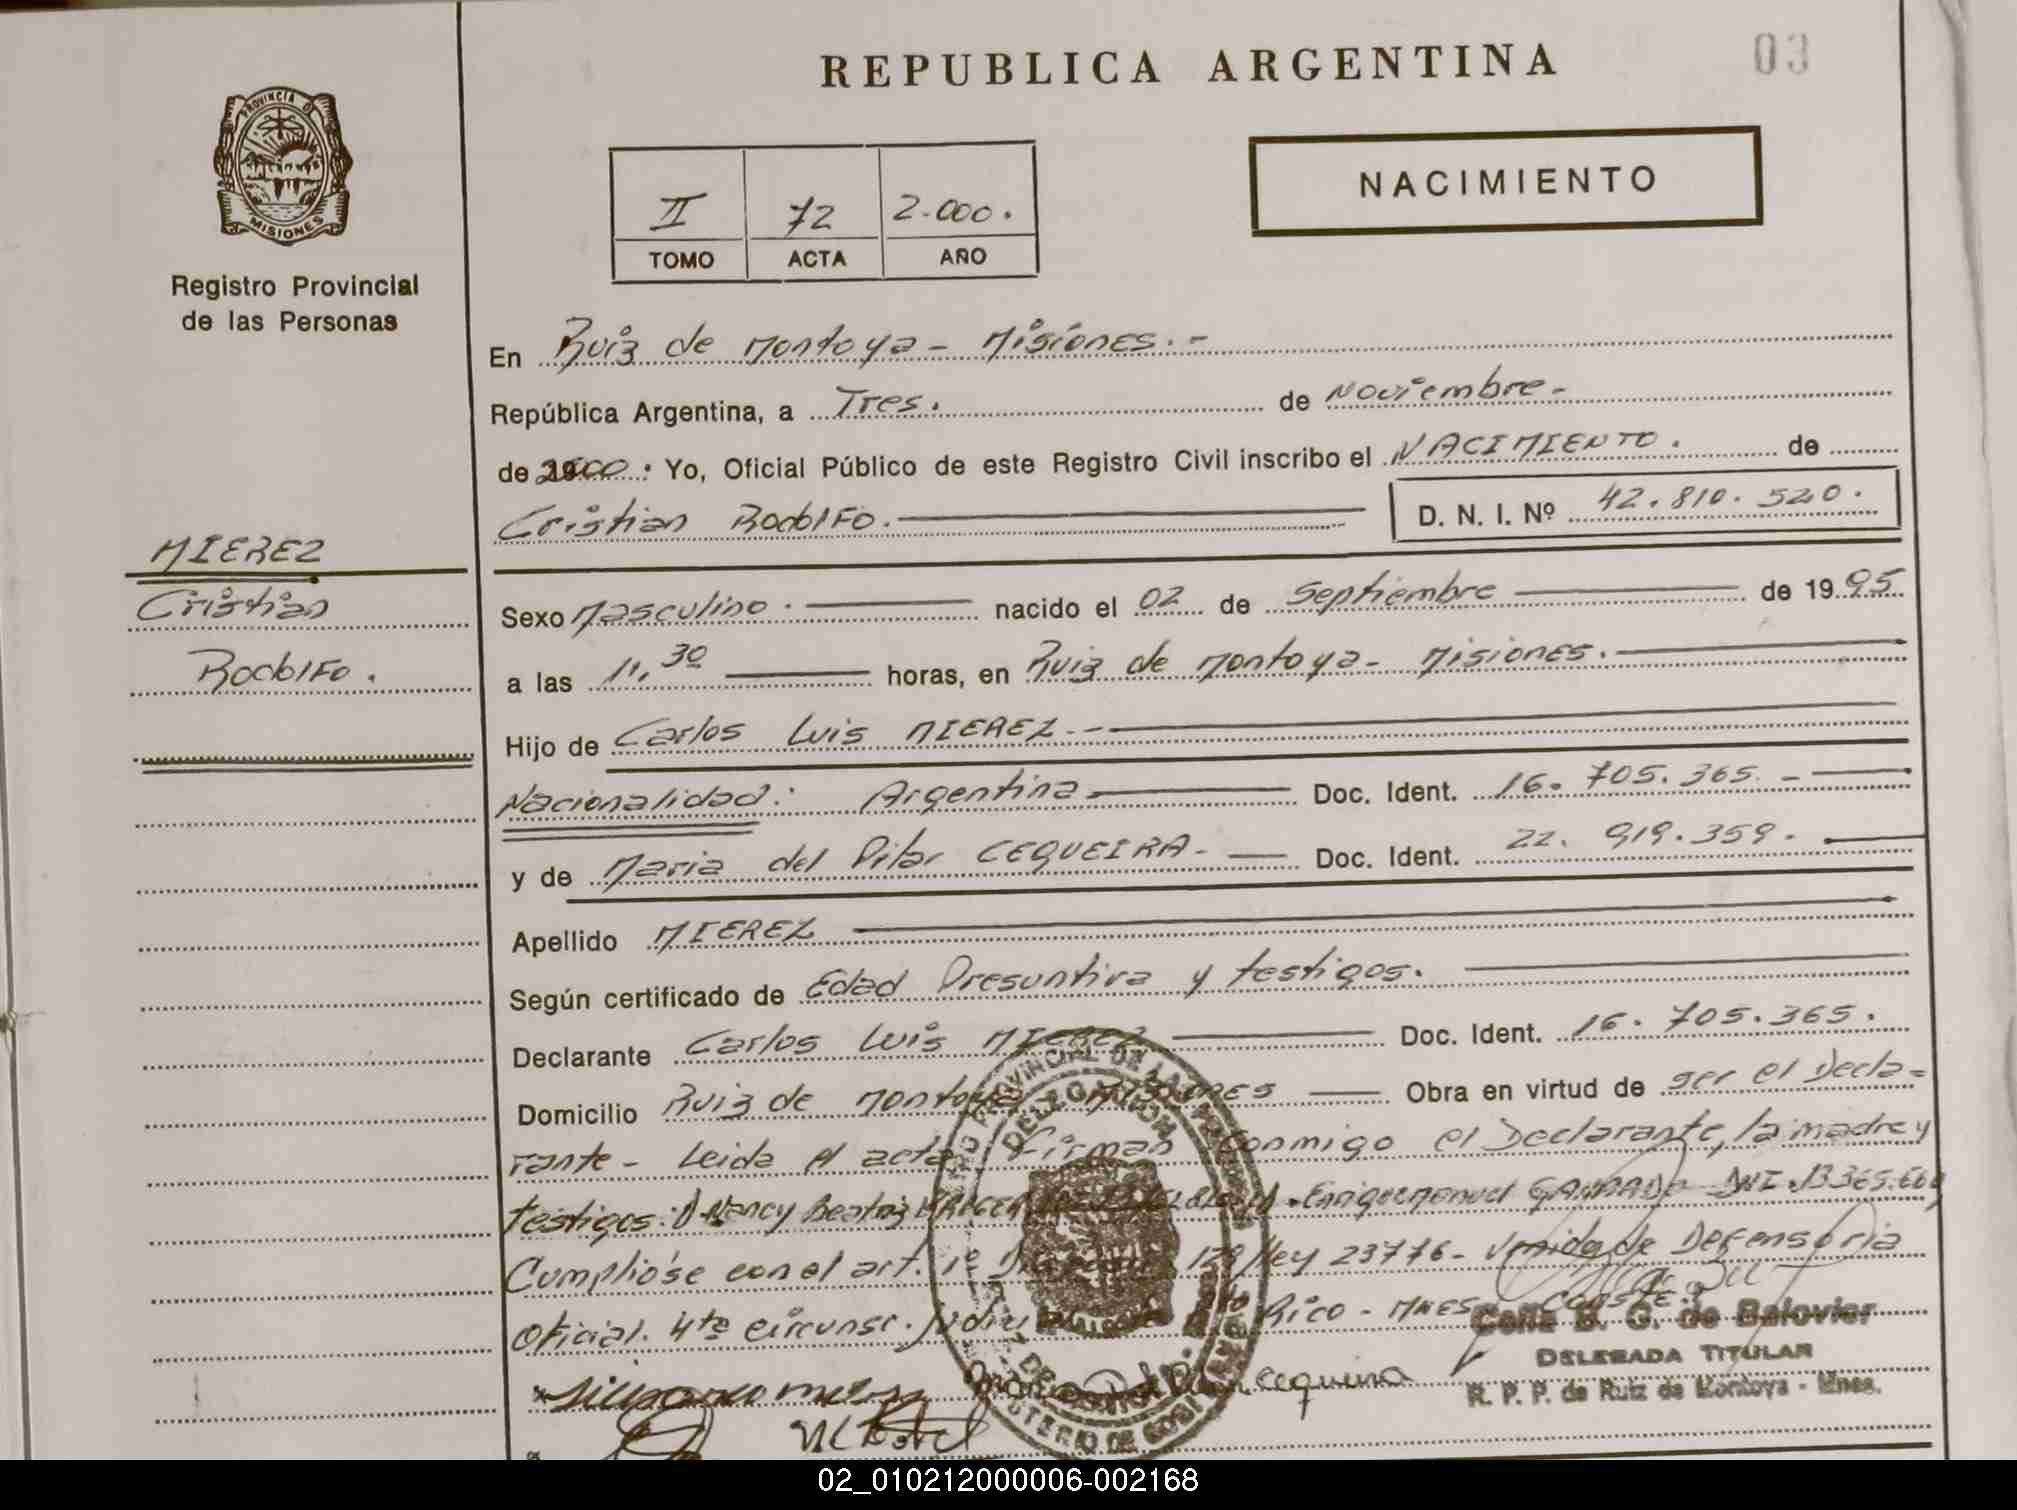 REPUBLICA ARGENTINA
03
PROVINCIA DE
MISIONES
Registro Provincial
de las Personas
II 72 2.000.
TOMO ACTA AÑO
NACIMIENTO
En Ruiz de Montoya - Misiones. -
República Argentina, a Tres. de Noviembre -
de 2000. Yo, Oficial Público de este Registro Civil inscribo el NACIMIENTO. de
Cristian Rodolfo. D. N. I. Nº 42.810.520.
MIEREZ
Cristian
Rodolfo.
Sexo Masculino. nacido el 02 de Septiembre de 1995
a las 11,30 horas, en Ruiz de Montoya - Misiones.
Hijo de Carlos Luis MIEREZ - -
Nacionalidad: Argentina Doc. Ident. 16. 705. 365. -
y de Maria del Pilar CEQUEIRA - Doc. Ident. 22. 919. 359.
Apellido MIEREZ
Según certificado de Edad Presuntiva y testigos.
Declarante Carlos Luis MIEREZ Doc. Ident. 16. 705. 365.
Domicilio Ruiz de Montoya Misiones Obra en virtud de ser el Decla-
rante - Leida el acta Firman conmigo el Declarante, la madre y
testigos: Nancy Beatriz Enrique Manuel DNI. 13.365.
Cumplióse con el art. 1º 129 ley 23776 - Venida de Defensoria
Oficial. 4ta circunsc. Rico - Mnes - Conste.
Cequeira
G. de Balovier
DELEGADA TITULAR
R. P. P. de Ruiz de Montoya - Mnes.
02_010212000006-002168